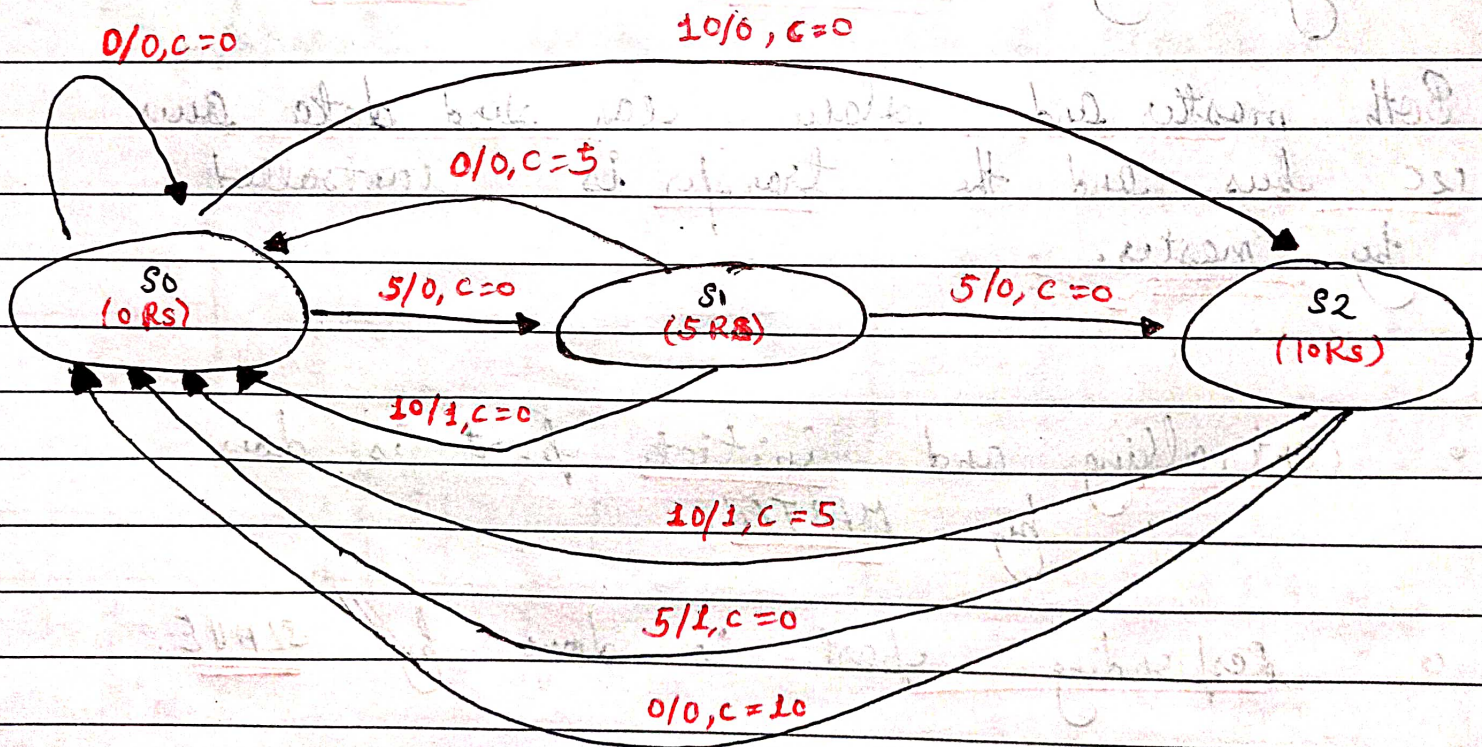 0/0, C=0
10/0, C=0
0/0, C=5
S0
(0 RS)
5/0, C=0
S1
(5 RS)
5/0, C=0
S2
(10RS)
10/1, C=0
10/1, C=5
5/1, C=0
0/0, C=10